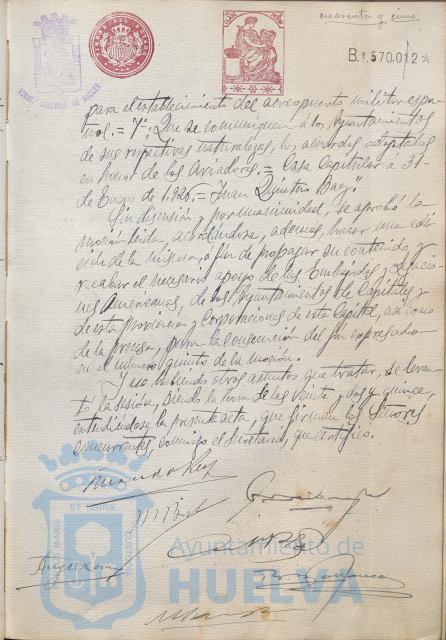 cuarenta y cinco
B.1.570.012*
para el establecimiento del aereopuerto militar espa-
ñol.= 7º: Que se comuniquen á los Ayuntamientos
de sus respectivas naturalezas, los acuerdos adoptados
en honor de los Aviadores.= Casa Capitular á 31-
de Enero de 1.926.= Juan Quintero Baez."
Sin discusión y por unanimidad, se aprobó la
moción leida, acordándose, además, hacer una edi-
ción de la misma, á fin de propagar su contenido y
recabar el necesario apoyo de las Embajadas y Legacio-
nes Américanas, de los Ayuntamientos de Capitales y
de esta Provincia y Corporaciones de esta Capital, así como
de la prensa, para la consecución del fin expresado
en el número quinto de la moción.
Y no habiendo otros asuntos que tratar, se levan-
tó la sesión, siendo la hora de las veinte y dos y quince,
extendiéndose la presente acta, que firman los Señores
concurrentes, conmigo el Secretario, que certifico.
Ayuntamiento de
HUELVA